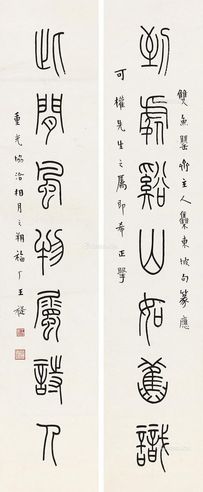 雙魚罌齋主人集東坡句篆應
到處谿山如舊識
可權先生之屬即希正
此閒風物屬詩人
重光協洽相月之朔福厂王禔